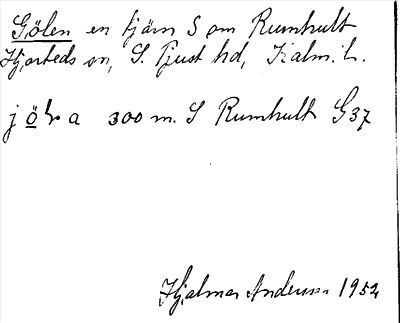 Gölen en tjärn S om Rumhult
Hjorteds sn, S. Tjust hd, Kalm. l.
j ö l a 300 m. S Rumhult G37
Hjalmar Andersson 1952